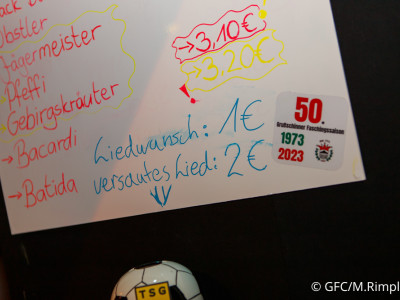 Obstler
Jägermeister
Pfeffi
Gebirgskräuter
→Bacardi
→Batida
→3,10€
→3,20€
!
Liedwunsch: 1€
versautes Lied: 2€
50.
1973
2023
TSG
© GFC/M.Rimpl